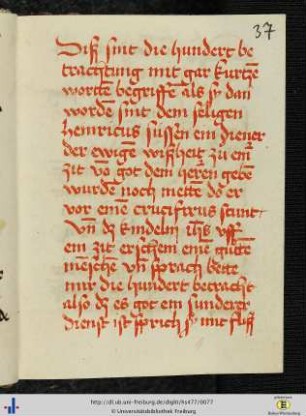 37
Diß sint die hundert be
trachtung mit gar kurtzē
wortē begriffē als sÿ dan
wordē sint dem seligen
heinricus süssen ein diener
der ewigē wißheit zu eīr
zit vō got dem herēn gebē
wurdē noch mette do er
vor einē crucifixus stunt
vn̄ dz kindelin ih̄s vff
ein zit erschein einē gūtē
mēschē vn̄ sprach bette
mir die hundert betracht
also dz es got ein sunderer
dienst ist sprich sÿ mit fliß
http://dl.ub.uni-freiburg.de/diglit/hs477/0077
© Universitätsbibliothek Freiburg